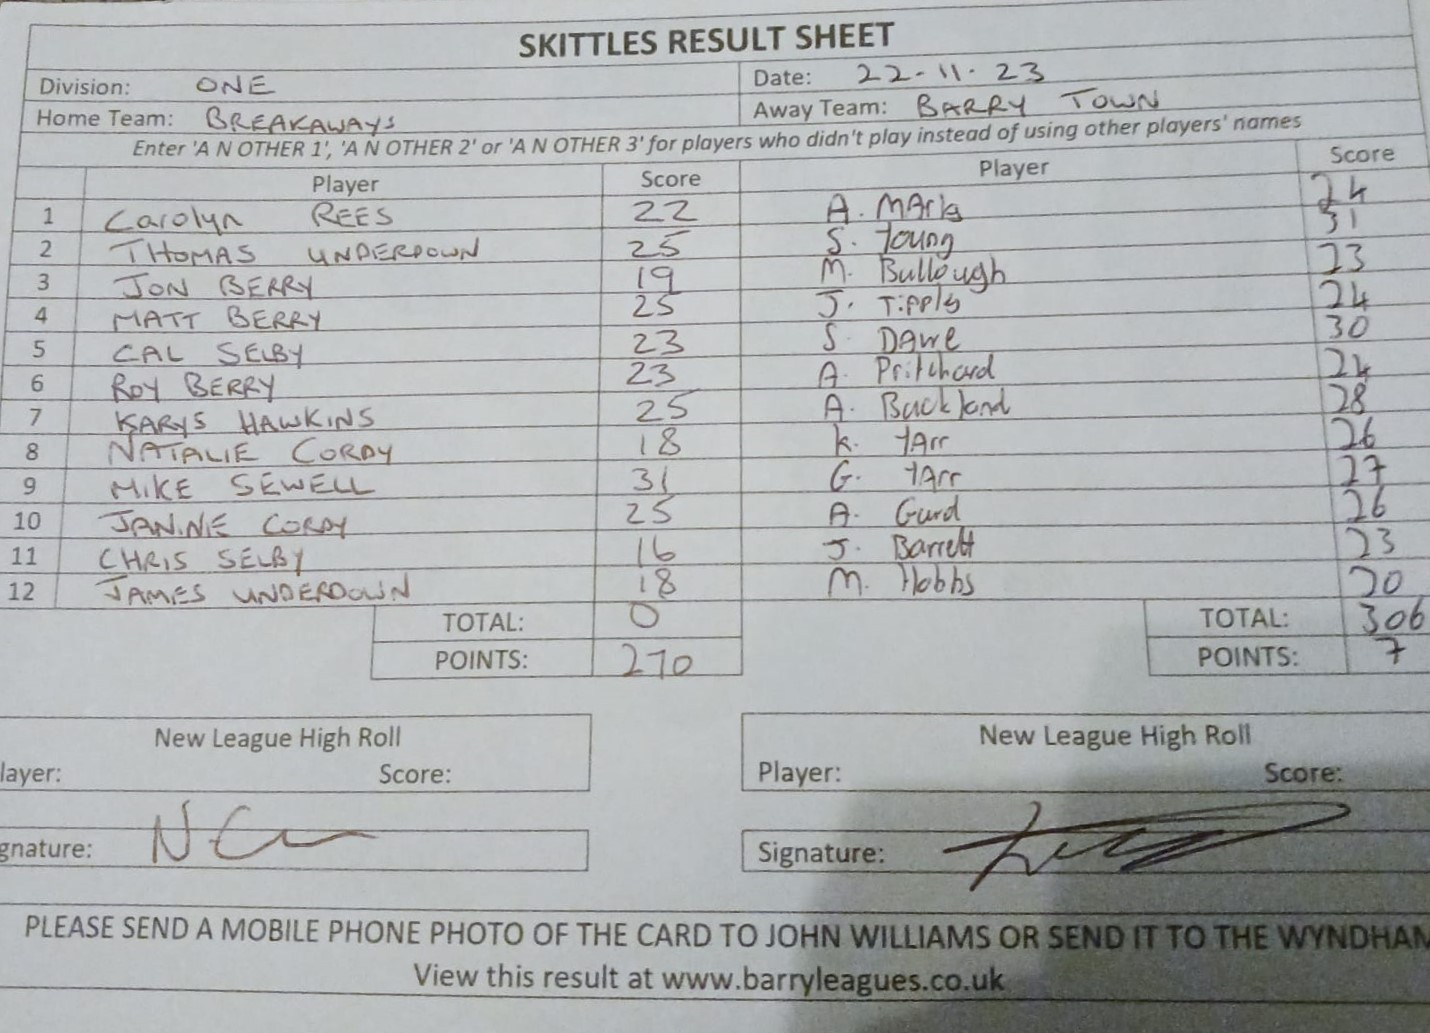 SKITTLES RESULT SHEET
Division: ONE Date: 22-11-23
Home Team: BREAKAWAYS Away Team: BARRY TOWN
Enter 'A N OTHER 1', 'A N OTHER 2' or 'A N OTHER 3' for players who didn't play instead of using other players' names
Player Score Player Score
1 Carolyn REES 22 A. MArks 24
2 THOMAS UNDERDOWN 25 S. Young 31
3 JON BERRY 19 M. Bullough 23
4 MATT BERRY 25 J. Tipply 24
5 CAL SELBY 23 S. DAwe 30
6 ROY BERRY 23 A. Pritchard 24
7 KARYS HAWKINS 25 A. Buckland 28
8 NATALIE CORDY 18 K. tArr 26
9 MIKE SEWELL 31 G. tArr 27
10 JANINE CORDY 25 A. Gurd 26
11 CHRIS SELBY 16 J. Barrett 23
12 JAMES UNDERDOWN 18 M. Hobbs 20
TOTAL: 0 TOTAL: 306
POINTS: 270 POINTS: 7
New League High Roll New League High Roll
layer: Score: Player: Score:
gnature: Signature:
PLEASE SEND A MOBILE PHONE PHOTO OF THE CARD TO JOHN WILLIAMS OR SEND IT TO THE WYNDHAM
View this result at www.barryleagues.co.uk